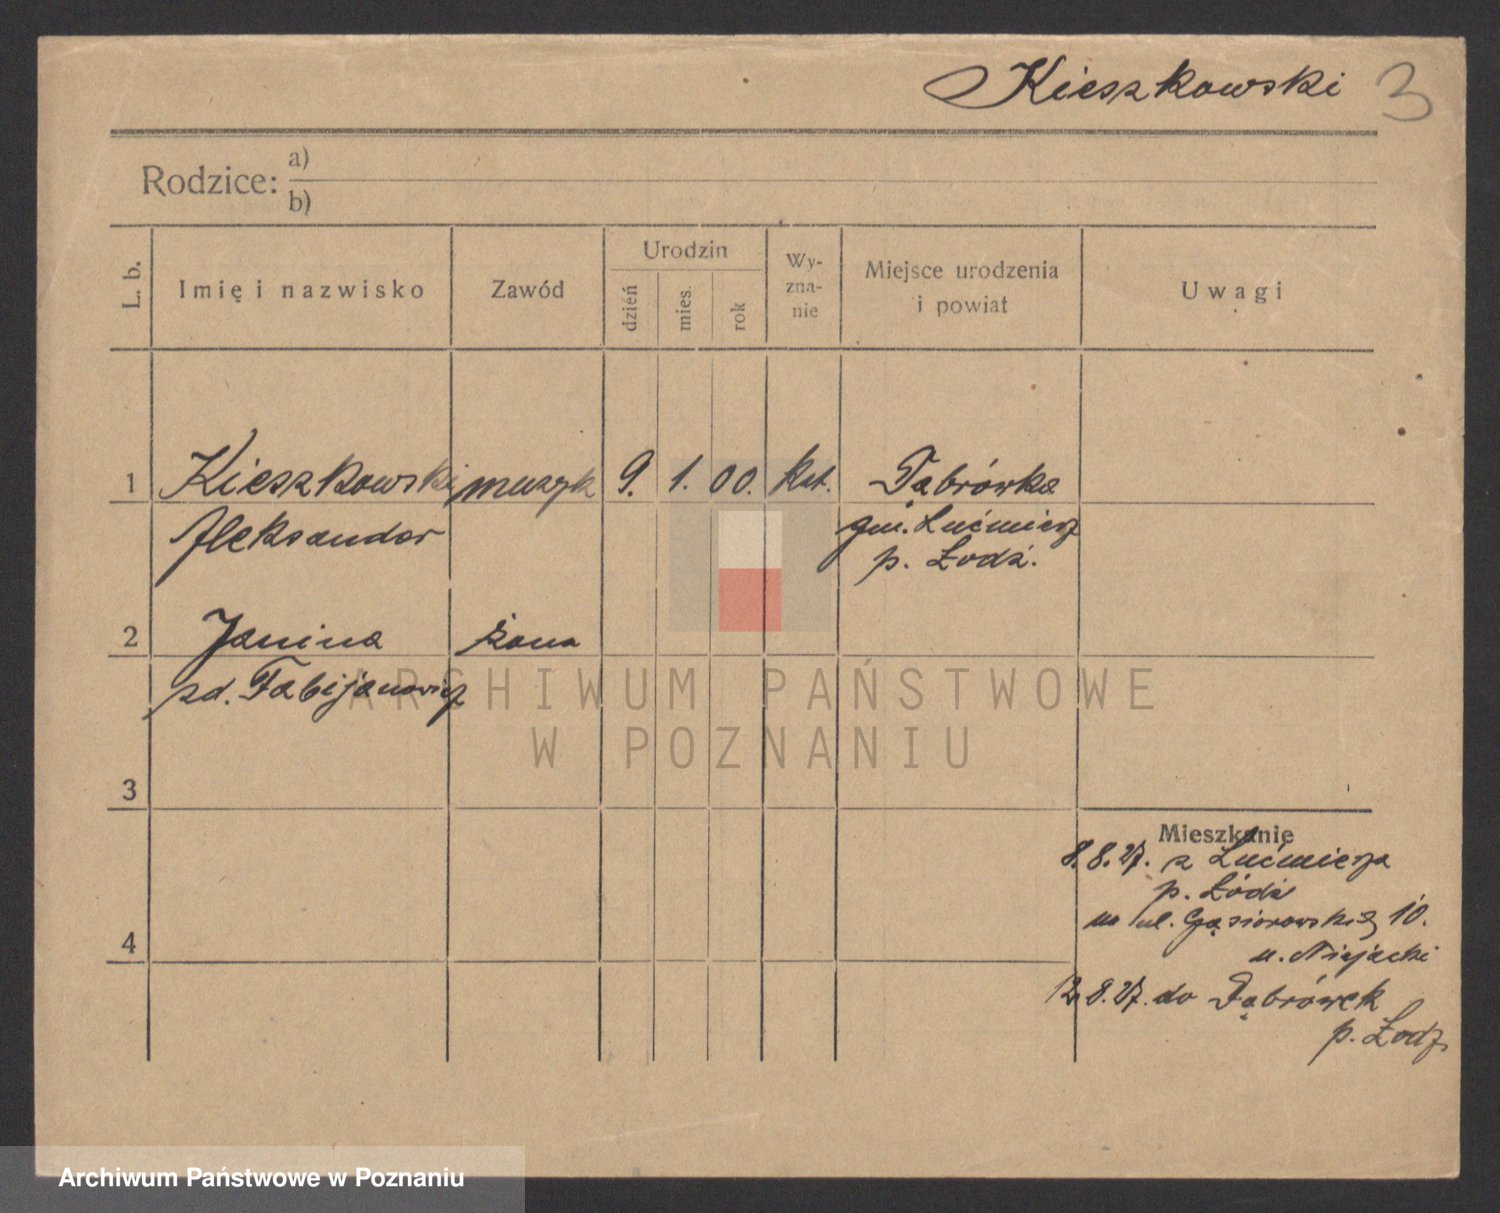 Kieszkowski 3
Rodzice: a)
b)
L. b.
Imię i nazwisko
Zawód
Urodzin
dzień
mies.
rok
Wy-
zna-
nie
Miejsce urodzenia
i powiat
Uwagi
1 Kieszkowski muzyk 9. 1. 00. kat. Dąbrówka
Aleksander gm. Lućmierz
p. Łodź.
2 Janina żona
zd. Fabijanowicz
ARCHIWUM PAŃSTWOWE
W POZNANIU
3
Mieszkanie
8.8.27. z Lućmierza
p. Łódź
na ul. Gąsiorowskich 10.
u. Nijacki
12.8.27. do Dąbrówek
p. Łodz.
4
Archiwum Państwowe w Poznaniu